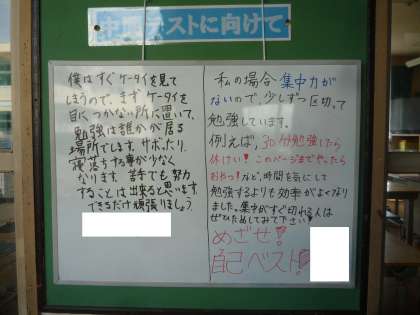 中間テストに向けて
僕はすぐケータイを見て
しまうので、まずケータイを
目につかない所に置いて、
勉強は誰かが居る
場所でします。サボったり、
寝落ちする事が少なく
なります。苦手でも努力
することは出来ると思います。
できるだけ頑張りましょう。
私の場合集中力が
ないので、少しずつ区切って
勉強しています。
例えば、30分勉強したら
休けい!このページまでやったら
おやつ!など、時間を気にして
勉強するよりも効率がよくなり
ました。集中がすぐ切れる人は
ぜひためしてみて下さい!
めざせ!
自己ベスト!